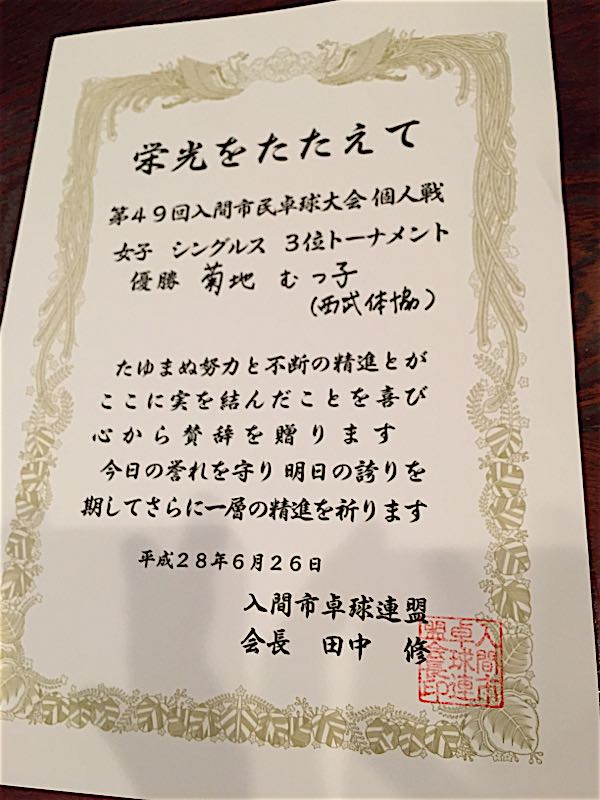 栄光をたたえて
第49回入間市民卓球大会 個人戦
女子 シングルス 3位トーナメント
優勝 菊地 むっ子
(西武体協)
たゆまぬ努力と不断の精進とが
ここに実を結んだことを喜び
心から賛辞を贈ります
今日の誉れを守り明日の誇りを
期してさらに一層の精進を祈ります
平成28年6月26日
入間市卓球連盟
会長 田中 修
入間市
卓球連
盟会長印